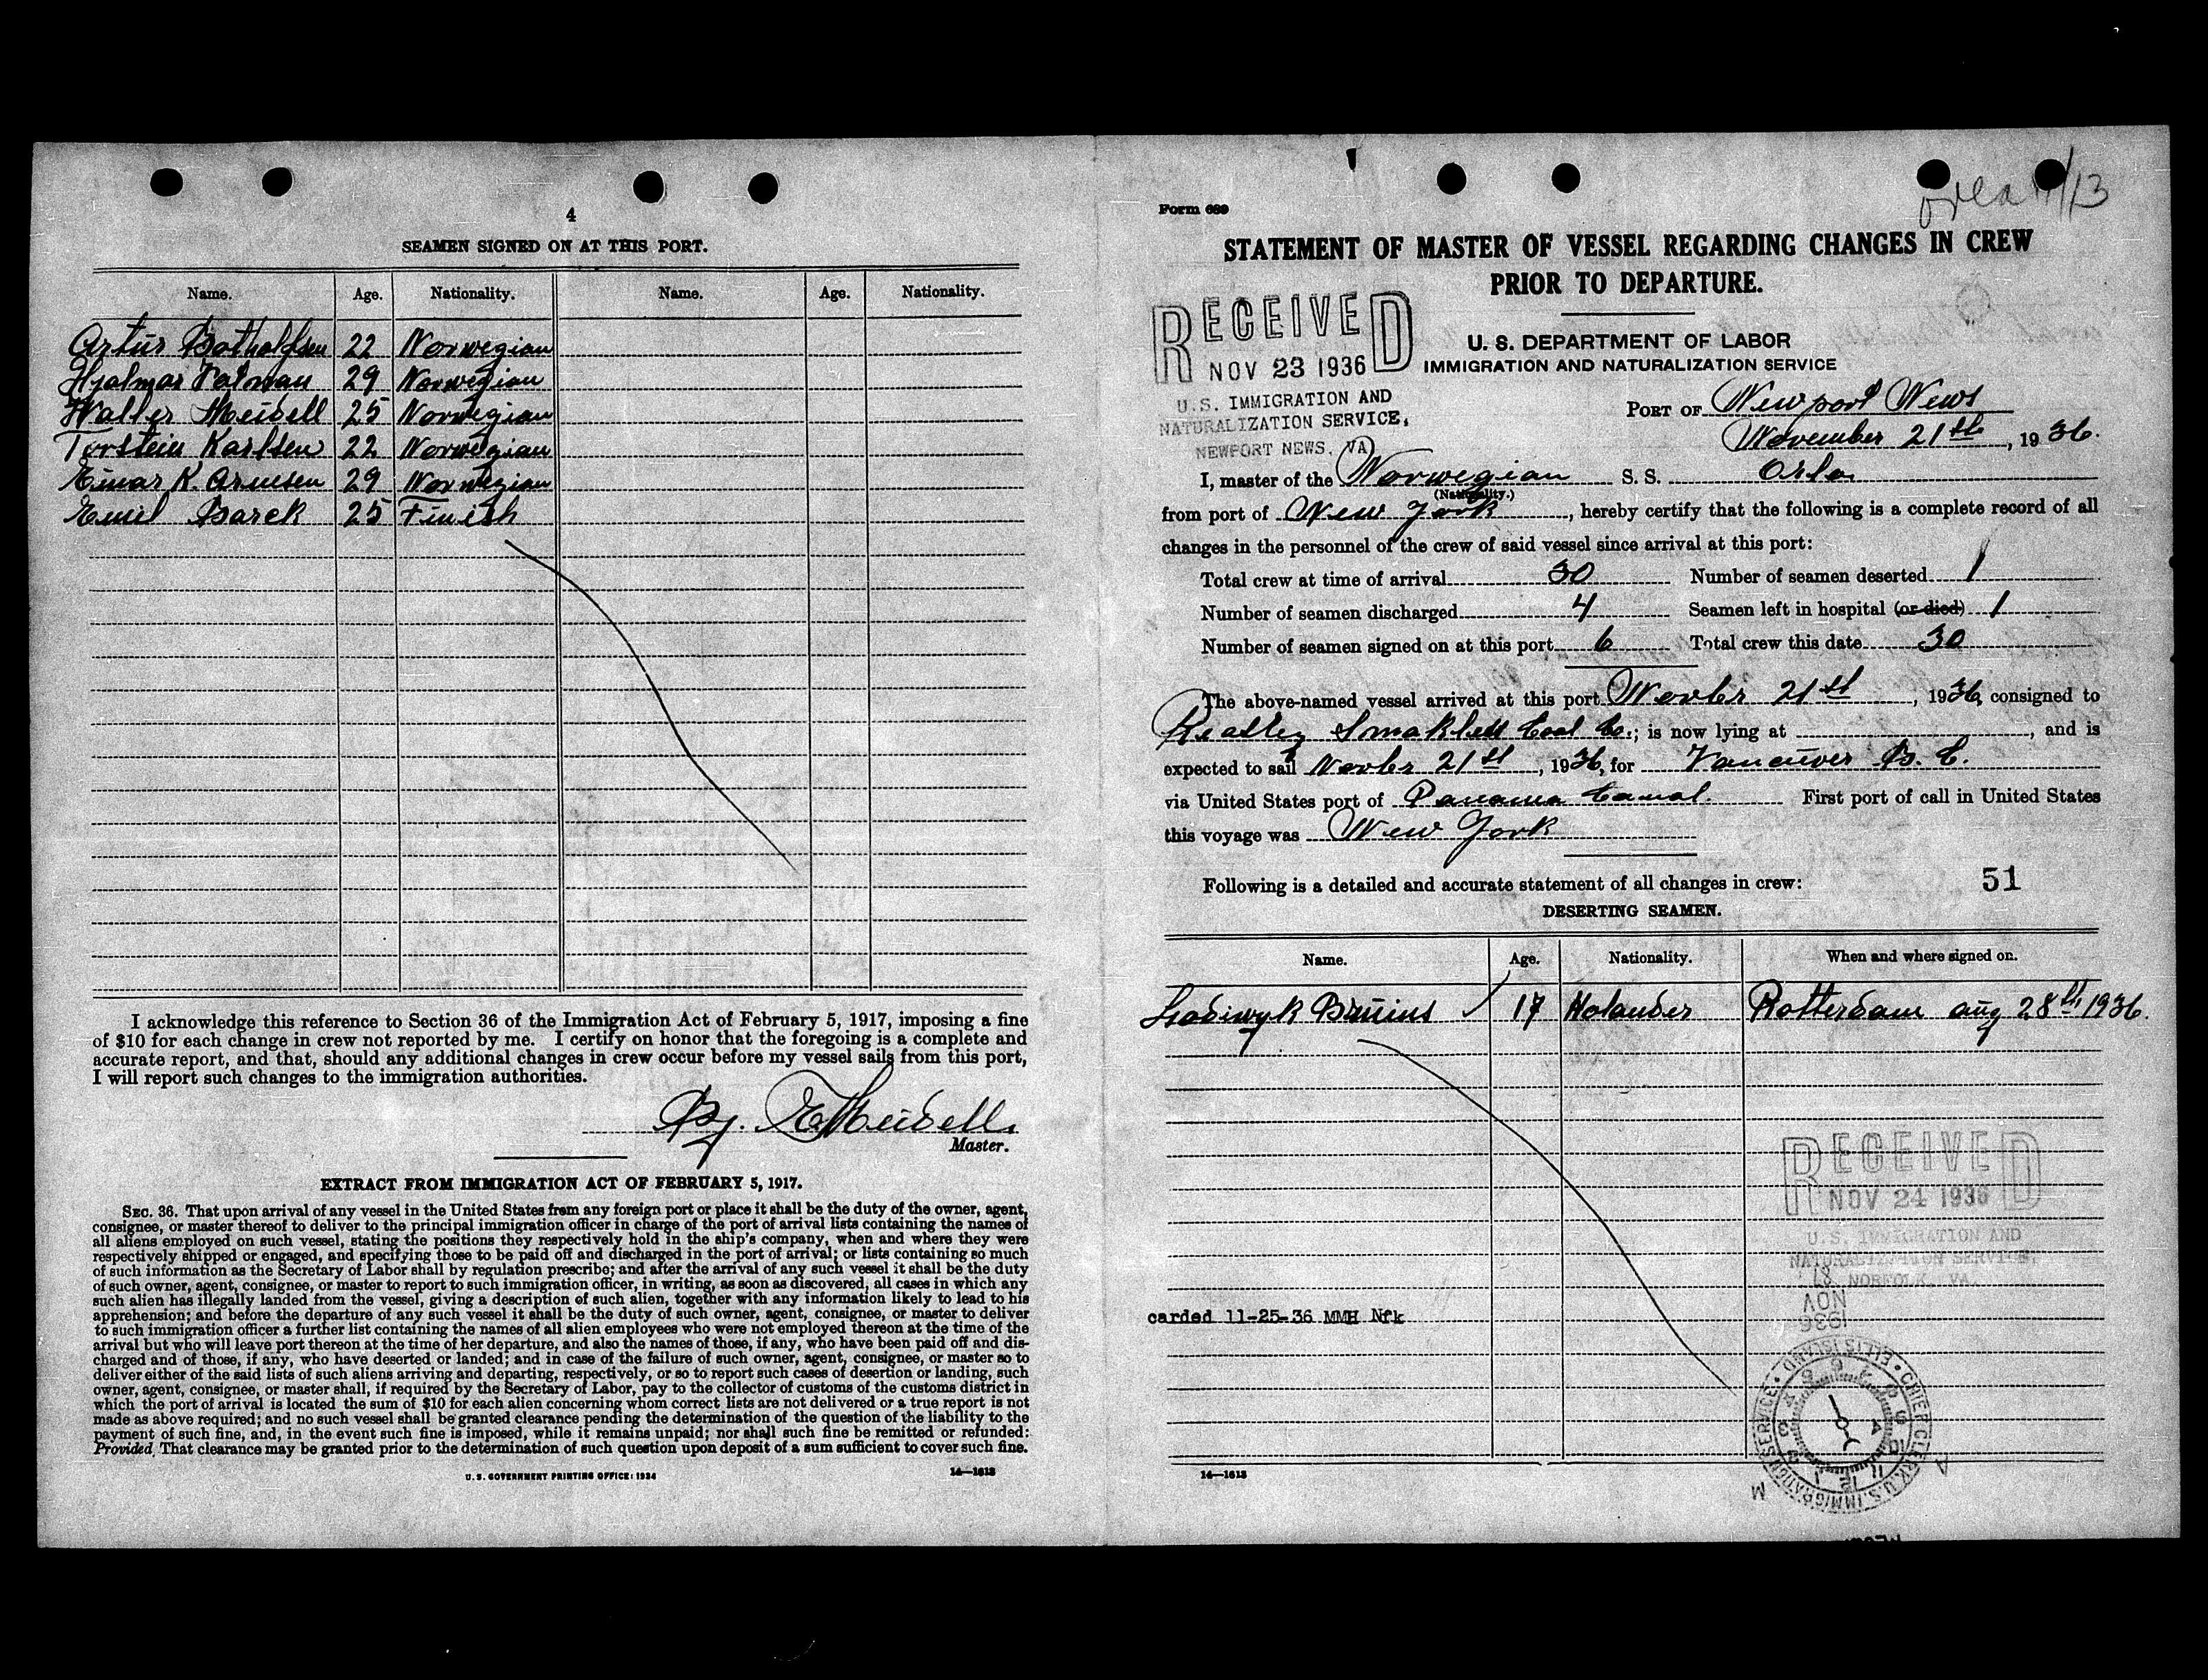 4
SEAMEN SIGNED ON AT THIS PORT.
Name. Age. Nationality. Name. Age. Nationality.
Artur Botholfsen 22 Norwegian
Hjalmar 29 Norwegian
Walter Meidell 25 Norwegian
Torstein Karlsen 22 Norwegian
Einar K. Arnesen 29 Norwegian
Emil Barck 25 Finish
I acknowledge this reference to Section 36 of the Immigration Act of February 5, 1917, imposing a fine
of $10 for each change in crew not reported by me. I certify on honor that the foregoing is a complete and
accurate report, and that, should any additional changes in crew occur before my vessel sails from this port,
I will report such changes to the immigration authorities.
Meidell
Master.
EXTRACT FROM IMMIGRATION ACT OF FEBRUARY 5, 1917.
SEC. 36. That upon arrival of any vessel in the United States from any foreign port or place it shall be the duty of the owner, agent,
consignee, or master thereof to deliver to the principal immigration officer in charge of the port of arrival lists containing the names of
all aliens employed on such vessel, stating the positions they respectively hold in the ship's company, when and where they were
respectively shipped or engaged, and specifying those to be paid off and discharged in the port of arrival; or lists containing so much
of such information as the Secretary of Labor shall by regulation prescribe; and after the arrival of any such vessel it shall be the duty
of such owner, agent, consignee, or master to report to such immigration officer, in writing, as soon as discovered, all cases in which any
such alien has illegally landed from the vessel, giving a description of such alien, together with any information likely to lead to his
apprehension; and before the departure of any such vessel it shall be the duty of such owner, agent, consignee, or master to deliver
to such immigration officer a further list containing the names of all alien employees who were not employed thereon at the time of the
arrival but who will leave port thereon at the time of her departure, and also the names of those, if any, who have been paid off and dis-
charged and of those, if any, who have deserted or landed; and in case of the failure of such owner, agent, consignee, or master so to
deliver either of the said lists of such aliens arriving and departing, respectively, or so to report such cases of desertion or landing, such
owner, agent, consignee, or master shall, if required by the Secretary of Labor, pay to the collector of customs of the customs district in
which the port of arrival is located the sum of $10 for each alien concerning whom correct lists are not delivered or a true report is not
made as above required; and no such vessel shall be granted clearance pending the determination of the question of the liability to the
payment of such fine, and, in the event such fine is imposed, while it remains unpaid; nor shall such fine be remitted or refunded:
Provided, That clearance may be granted prior to the determination of such question upon deposit of a sum sufficient to cover such fine.
U. S. GOVERNMENT PRINTING OFFICE: 1934 14—1613
Form 689
STATEMENT OF MASTER OF VESSEL REGARDING CHANGES IN CREW
PRIOR TO DEPARTURE.
RECEIVED
NOV 23 1936
U.S. IMMIGRATION AND
NATURALIZATION SERVICE,
NEWPORT NEWS, VA
U. S. DEPARTMENT OF LABOR
IMMIGRATION AND NATURALIZATION SERVICE
PORT OF Newport News
November 21th, 1936.
I, master of the Norwegian S. S. Orla
(Nationality.)
from port of New York, hereby certify that the following is a complete record of all
changes in the personnel of the crew of said vessel since arrival at this port:
Total crew at time of arrival 30 Number of seamen deserted 1
Number of seamen discharged 4 Seamen left in hospital (or died) 1
Number of seamen signed on at this port 6 Total crew this date 30
The above-named vessel arrived at this port Novbr 21st, 1936, consigned to
Smokless Coal Co.; is now lying at , and is
expected to sail Novbr 21st, 1936, for Vancuver B. C.
via United States port of Panama Canal. First port of call in United States
this voyage was New York
Following is a detailed and accurate statement of all changes in crew: 51
DESERTING SEAMEN.
Name. Age. Nationality. When and where signed on.
Lodiwyk Bruins 17 Holander Rotterdam aug 28th 1936.
RECEIVED
NOV 24 1936
U.S. IMMIGRATION AND
NATURALIZATION SERVICE,
NORFOLK, VA.
carded 11-25-36 MMH Nfk
NOV
1936
CHIEF CLERK, U.S. IMMIGRATION SERVICE • ELLIS ISLAND •
14—1613